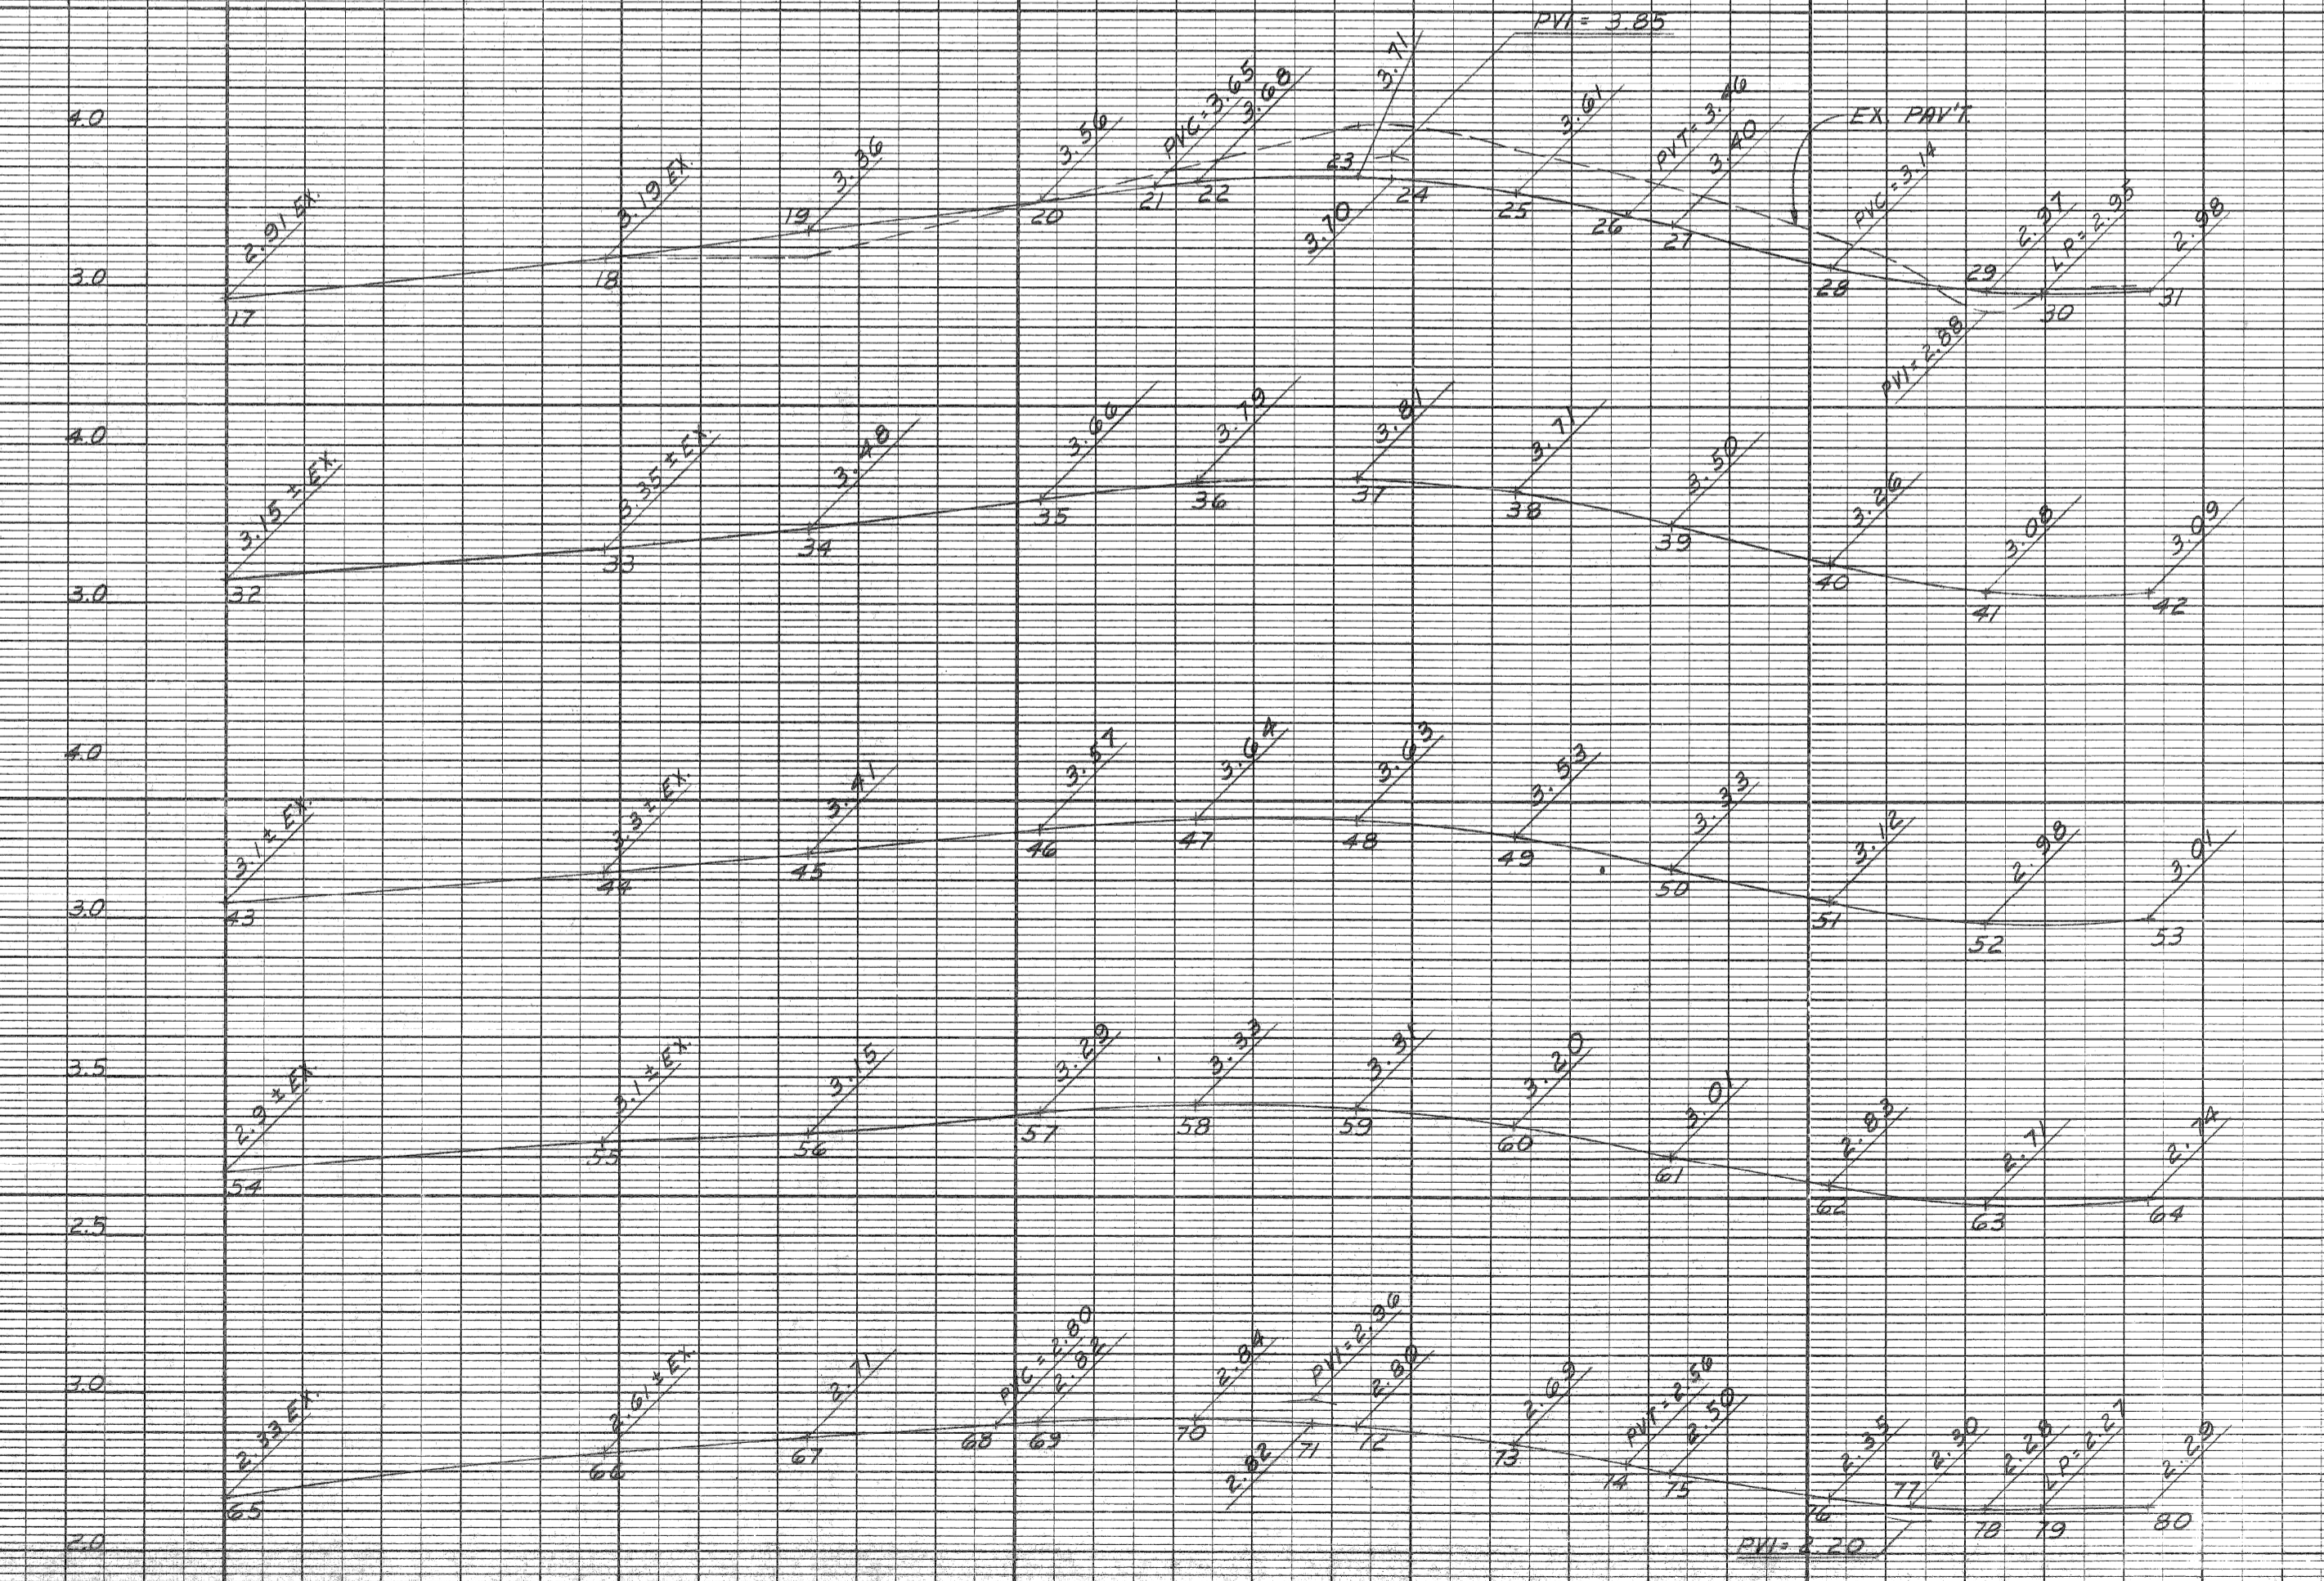 PVI = 3.85
4.0
2.91 EX.
3.19 EX.
3.36
3.56
PVC = 3.65
3.68
3.71
3.61
PVT = 3.46
3.40
EX. PAV'T.
PVC = 3.14
2.97
LP = 2.95
2.98
3.0
17
18
19
20
21
22
23
3.70
24
25
26
27
28
29
30
31
PVI = 2.88
4.0
3.15 ± EX.
3.35 ± EX.
3.48
3.66
3.79
3.81
3.71
3.50
3.26
3.08
3.09
3.0
32
33
34
35
36
37
38
39
40
41
42
4.0
3.1 ± EX.
3.3 ± EX.
3.41
3.57
3.64
3.63
3.53
3.33
3.12
2.98
3.01
3.0
43
44
45
46
47
48
49
50
51
52
53
3.5
2.9 ± EX.
3.1 ± EX.
3.15
3.29
3.33
3.31
3.20
3.01
2.83
2.71
2.74
54
55
56
57
58
59
60
61
62
63
64
2.5
3.0
2.33 EX.
2.61 ± EX.
2.71
PVC = 2.80
2.82
2.84
PVI = 2.96
2.80
2.69
PVT = 2.56
2.50
2.35
2.30
2.28
LP = 2.27
2.29
65
66
67
68
69
70
2.82
71
72
73
74
75
76
77
78
79
80
2.0
PVI = 2.20